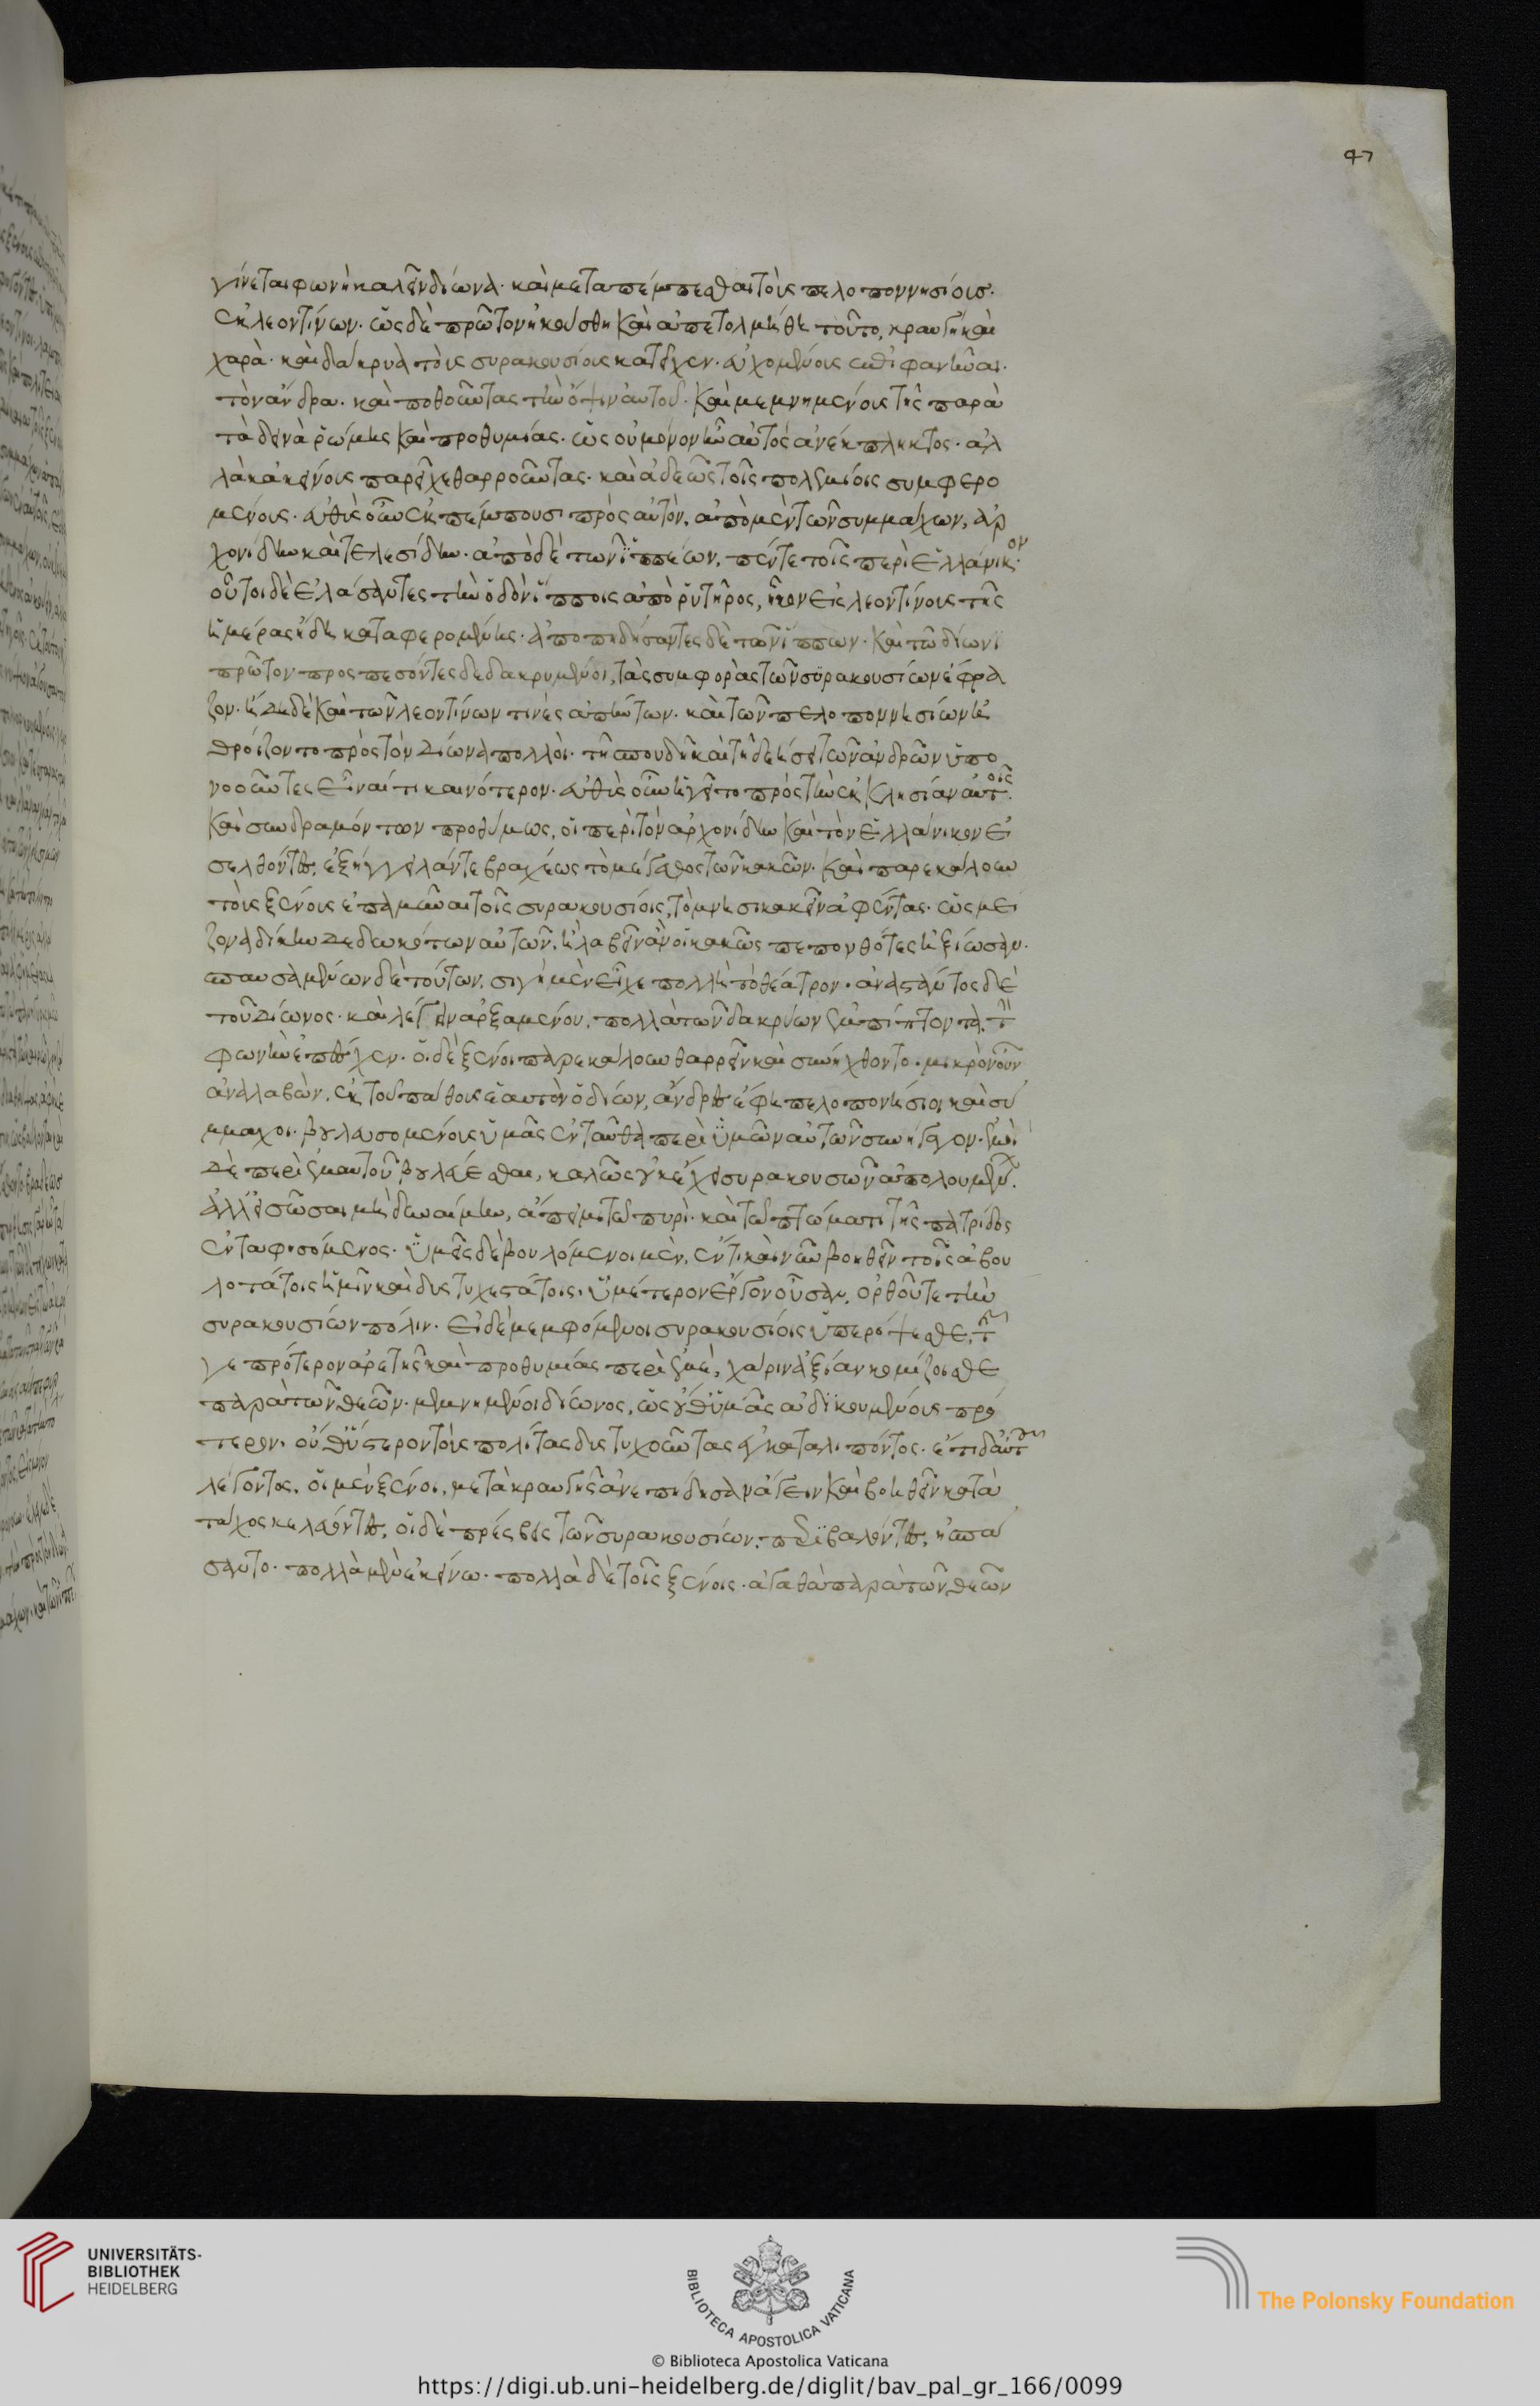 47
γίνεται φωνὴ καλεῖν δίωνα· καὶ μεταπέμπεσθαι τοὺς πελοποννησίους·
ἐκ λεοντίνων· ὡς δὲ πρῶτον ἠκούσθη καὶ ἀπετολμήθη τοῦτο, κραυγὴ καὶ
χαρὰ· καὶ δάκρυα τοὺς συρακουσίους κατεῖχεν· εὐχομένους ἐπιφανῆναι·
τὸν ἄνδρα· καὶ ποθοῦντας τὴν ὄψιν αὐτοῦ· καὶ μεμνημένους τῆς παρὰ
τὰ δεινὰ ῥώμης καὶ προθυμίας· ὡς οὐ μόνον ἦν αὐτὸς ἀνέκπληκτος· ἀλ
λὰ κἀκείνους παρεῖχε θαρροῦντας· καὶ ἀδεῶς τοῖς πολεμίοις συμφερο
μένους· εὐθὺς οὖν ἐκπέμπουσι πρὸς αὐτὸν, ἀπὸ μὲν τῶν συμμάχων, ἀρ
χονίδην καὶ τελεσίδην· ἀπὸ δὲ τῶν ἱππέων, πέντε τοὺς περὶ ἑλλάνικον·
οὗτοι δὲ ἐλάσαντες τὴν ὁδὸν ἵπποις ἀπὸ ῥυτῆρος, ἧκον εἰς λεοντίνους τῆς
ἡμέρας ἤδη καταφερομένης· ἀποπηδήσαντες δὲ τῶν ἵππων· καὶ τῶ δίωνι
πρῶτον προσπεσόντες δεδακρυμένοι, τὰς συμφορὰς τῶν συρακουσίων ἔφρα
ζον· ἤδη δὲ καὶ τῶν λεοντίνων τινὲς ἀπήντων· καὶ τῶν πελοποννησίων ἠ
θροίζοντο πρὸς τὸν δίωνα πολλοὶ· τῇ σπουδῇ καὶ τῇ δεήσει τῶν ἀνδρῶν ὑπο
νοοῦντες εἶναί τι καινότερον· εὐθὺς οὖν ἡγεῖτο πρὸς τὴν ἐκκλησίαν αὐτοῖς·
καὶ συνδραμόντων προθύμως, οἱ περὶ τὸν ἀρχονίδην καὶ τὸν ἑλλάνικον εἰ
σελθόντες, ἐξήγγειλάν τε βραχέως τὸ μέγεθος τῶν κακῶν· καὶ παρεκάλουν
τοὺς ξένους ἐπαμῦναι τοῖς συρακουσίοις, τὸ μνησικακεῖν ἀφέντας· ὡς μεί
ζονα δίκην δεδωκότων αὐτῶν, ἢ λαβεῖν ἂν οἱ κακῶς πεπονθότες ἠξίωσαν·
παυσαμένων δὲ τούτων, σιγὴ μὲν εἶχε πολλὴ τὸ θέατρον· ἀναστάντος δὲ
τοῦ δίωνος· καὶ λέγειν ἀρξαμένου, πολλὰ τῶν δακρύων ἐκπίπτοντα, τὴν
φωνὴν ἐπέσχεν· οἱ δὲ ξένοι παρεκάλουν θαρρεῖν καὶ συνήχθοντο· μικρὸν οὖν
ἀναλαβὼν, ἐκ τοῦ πάθους ἑαυτὸν ὁ δίων, ἄνδρες ἔφη πελοπονήσιοι καὶ σύ
μμαχοι· βουλευσομένους ὑμᾶς ἐνταῦθα περὶ ὑμῶν αὐτῶν συνήγαγον· ἐμοὶ
δὲ περὶ ἐμαυτοῦ βουλεύεσθαι, καλῶς οὐκ ἔχει συρακουσῶν ἀπολουμένων·
ἀλλ' εἰ σῶσαι μὴ δυναίμην, ἄπειμι τῶ πυρὶ· καὶ τῶ πτώματι τῆς πατρίδος
ἐνταφησόμενος· ὑμεῖς δὲ βουλόμενοι μὲν, ἔτι καὶ νῦν βοηθεῖν τοῖς ἀβου
λοτάτοις ἡμῖν καὶ δυστυχεστάτοις, ὑμέτερον ἔργον οὖσαν, ὀρθοῦτε τὴν
συρακουσίων πόλιν· εἰ δὲ μεμφόμενοι συρακουσίοις ὑπερόψεσθε, τῆς
γε πρότερον ἀρετῆς καὶ προθυμίας περὶ ἐμὲ, χάριν ἀξίαν κομίζοισθε
παρὰ τῶν θεῶν· μεμνημένοι δίωνος, ὡς οὔθ' ὑμᾶς ἀδικουμένους πρό
τερον· οὔθ' ὕστερον τοὺς πολίτας δυστυχοῦντας ἐγκαταλιπόντος· ἔτι δ' αὐτοῦ
λέγοντος, οἱ μὲν ξένοι, μετὰ κραυγῆς ἀνεπήδησαν ἄγειν καὶ βοηθεῖν κατὰ
τάχος κελεύοντες, οἱ δὲ πρέσβεις τῶν συρακουσίων, περιβαλόντες, ἠσπά
σαντο· πολλὰ μὲν ἐκείνω· πολλὰ δὲ τοῖς ξένοις· ἀγαθὰ παρὰ τῶν θεῶν
UNIVERSITÄTS-
BIBLIOTHEK
HEIDELBERG
BIBLIOTECA APOSTOLICA VATICANA
The Polonsky Foundation
© Biblioteca Apostolica Vaticana
https://digi.ub.uni-heidelberg.de/diglit/bav_pal_gr_166/0099